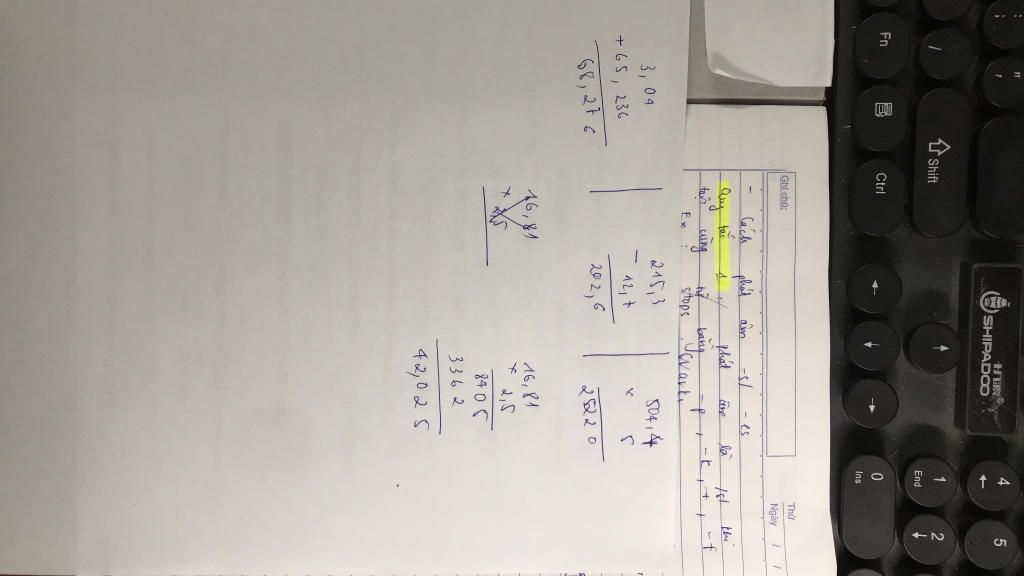 Ghi chú:
Thứ
Ngày / /
- Cách phát âm -s/ -es
Quy tắc 1 / phát âm là /s/ khi
tận cùng từ bằng -p, -k, -t, -f
Ex: stops
3,04
+ 65,236
68,276
215,3
- 12,7
202,6
504,4
× 5
25220
16,81
× 2,5
16,81
× 2,5
8405
3362
42,025
Fn
/
;
:
"
'
Shift
Ctrl
←
↑
↓
→
SHIPADOO
0
Ins
1
End
2
↓
4
←
5